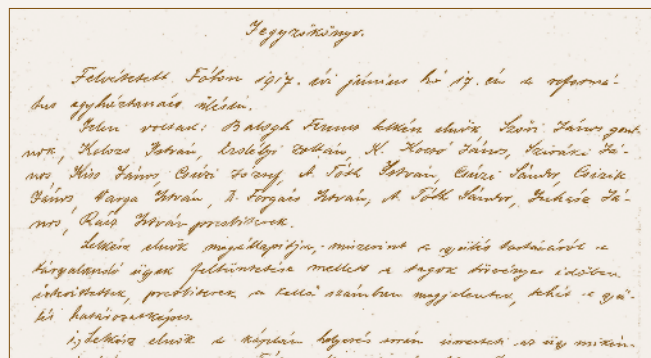 Jegyzőkönyv.
Felvétetett Fóton 1917. évi június hó 17.-én a reformá-
tus egyháztanács ülésén.
Jelen voltak: Balogh Ferenc lelkész elnök, Szőri János gond-
nok, István, Erdélyi Zoltán, K. Kocsó János, Sziráki Já-
nos, Kiss János, Csízi József, A. Tóth István, Csízi Sándor, Csizik
János, Varga István, D. Forgács István, A. Tóth Sándor, Juhász Já-
nos, Rácz István presbiterek.
Lelkész elnök megállapítja, miszerint a gyűlés tartásáról a
tárgyalandó ügyek feltüntetése mellett a tagok törvényes időben
értesíttettek, presbiterek a kellő számban megjelentek, tehát a gyű-
lés határozatképes.
1, Lelkész elnök a káplán helyezés során ismerteti az ügy mikén-